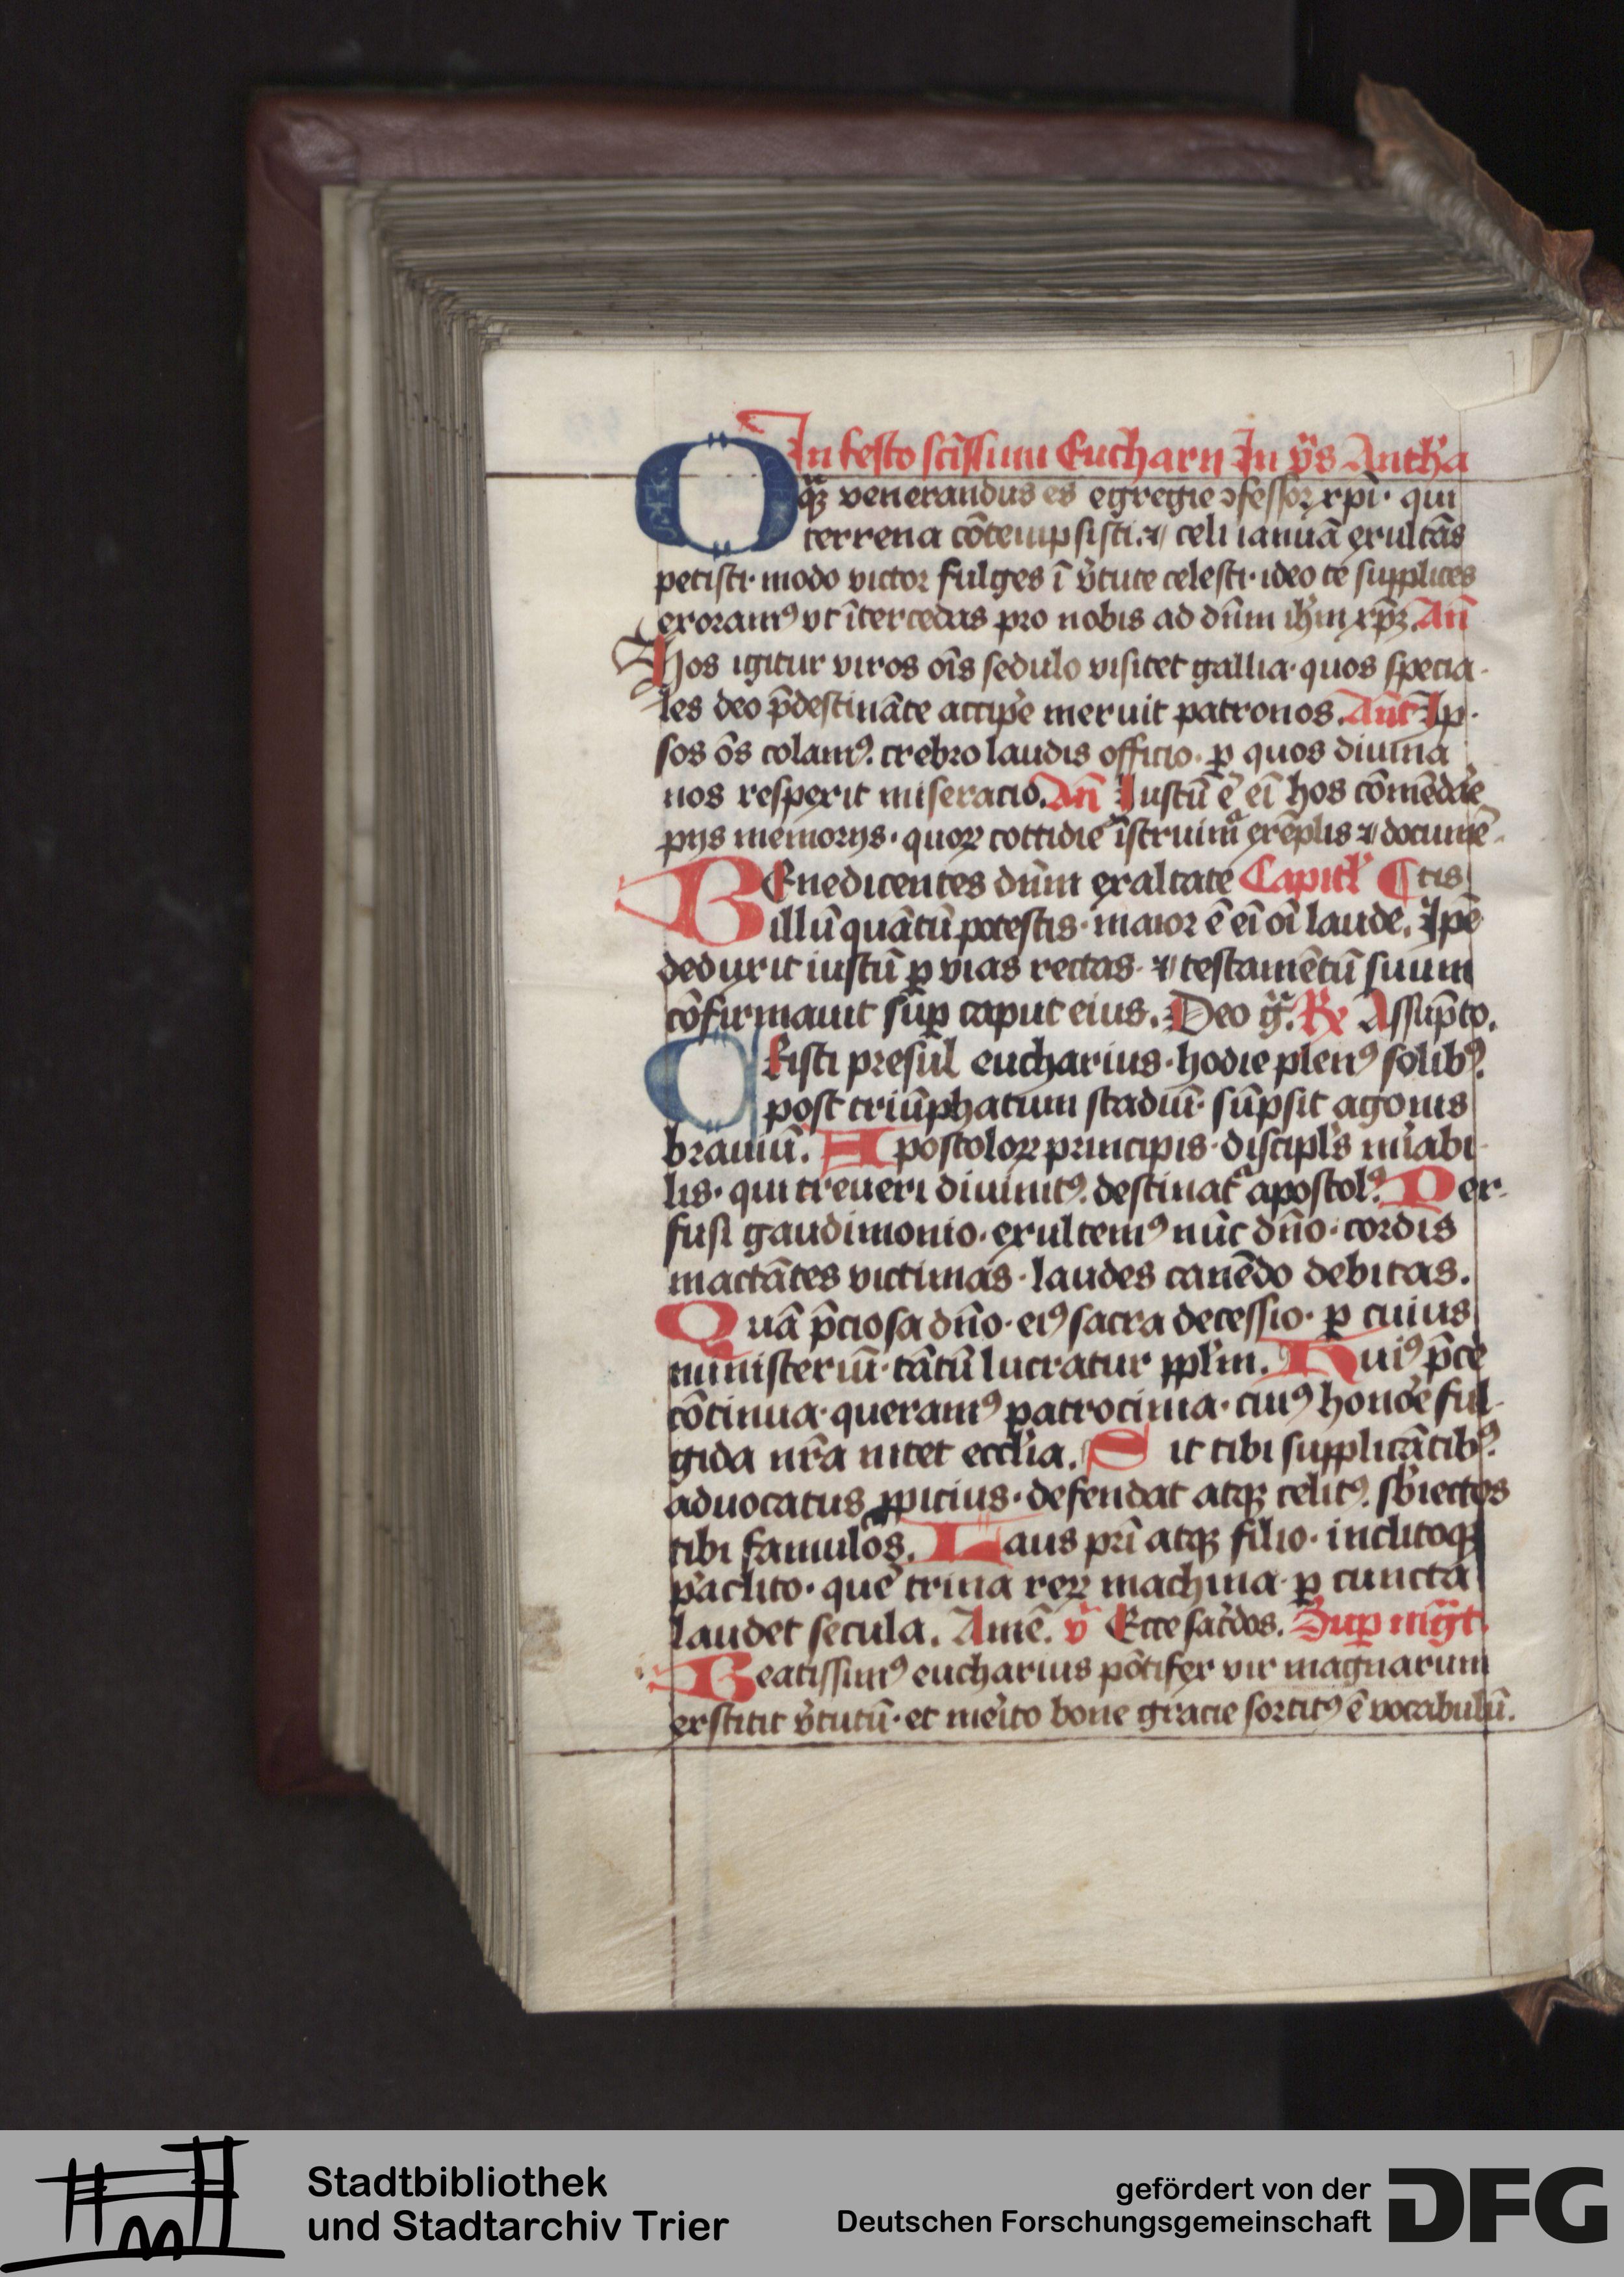 In festo sctissimi Eucharii In v̄ꝭs Antħa
O qͣꝫ venerandus es egregie ꝯfessor xpi· qui
terrena cōtempsisti. ⁊ celi ianuā exultās
petisti· modo victor fulges ī v̄tute celesti· ideo te supplices
exoramꝰ vt ītercedas pro nobis ad dn̄m ih̄m xp̄ꝫ. An̄
Hos igitur viros oīs sedulo visitet gallia· quos specia-
les deo p̄destināte accipe meruit patronos. Ant̄ Ip-
sos ōs colamꝰ. crebro laudis officio· ꝑ quos diuina
nos respexit miseracio. An̄ Iustū ē eī hos cōmēdare
piis memoriis· quoꝝ cottidie īstruimͣ exēplis ⁊ documē-
BEnedicentes dn̄m exaltate Capitl̄ ¶ tis
illū quātū potestis· maior ē eī oī laude. Ip̄e
deduxit iustū ꝑ vias rectas· ⁊ testamētū suum
cōfirmauit suꝑ caput eius. Deo gͣ. Rx Assūpto.
CRisti presul eucharius· hodie plenꝰ solibꝰ.
post triūphatum stadiū· sūpsit agonis
brauiū. Apostoloꝝ principis· discipl̄s mirabi-
lis· qui treueri diuinitꝰ. destinatͣ apostolꝰ. Per-
fusi gaudimonio· exultemꝰ nūc dn̄o· cordis
mactātes victimas· laudes canēdo debitas.
Quā p̄ciosa dn̄o· eiꝰ sacra decessio· ꝑ cuius
ministeriū· tātū lucratur ppl̄m. Huiꝰ p̄ce
cōtinua· queramꝰ patrocinia· cuiꝰ honore ful-
gida nr̄a nitet eccl̄ia. Sit tibi supplicātibꝰ.
aduocatus ꝓpicius· defendat atqꝫ celitꝰ. sb̄iectos
tibi famulos. Laus pr̄i atqꝫ filio· inclitoqꝫ
p̄aclito· que trina reꝝ machina· ꝑ cuncta
laudet secula. Amē. v̄ Ecce sac̄dos. Suꝑ mgͣt.
Beatissimꝰ eucharius pōtifex vir magnarum
exstitit v̄tutū· et merito bone gracie sortitꝰ ē vocabulū.
Stadtbibliothek
und Stadtarchiv Trier
gefördert von der
Deutschen Forschungsgemeinschaft
DFG